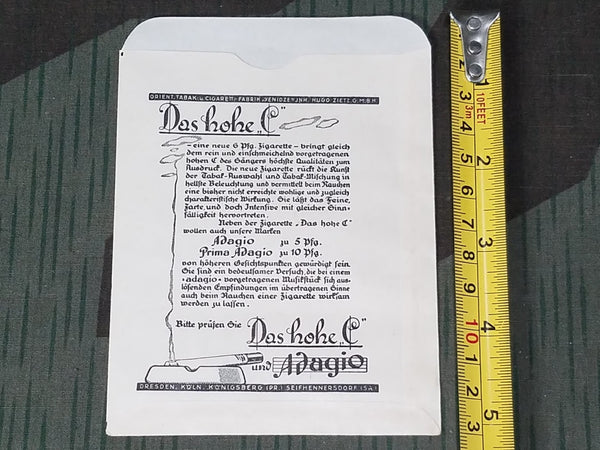 ORIENT. TABAK- u. CIGARETT.-FABRIK „YENIDZE“ JNH. HUGO ZIETZ G.M.B.H.
Das hohe „C“
– eine neue 6 Pfg. Zigarette – bringt gleich
dem rein und einschmeichelnd vorgetragenen
hohen C des Sängers höchste Qualitäten zum
Ausdruck. Die neue Zigarette rückt die Kunst
der Tabak-Auswahl und Tabak-Mischung in
hellste Beleuchtung und vermittelt beim Rauchen
eine bisher nicht erreichte wohlige und zugleich
charakteristische Wirkung. Sie läßt das Feine,
Zarte, und doch Intensive mit gleicher Sinn-
fälligkeit hervortreten.
Neben der Zigarette „Das hohe C“
wollen auch unsere Marken
Adagio zu 5 Pfg.
Prima Adagio zu 10 Pfg.
von höheren Gesichtspunkten gewürdigt sein.
Sie sind ein bedeutsamer Versuch, die bei einem
„adagio“ vorgetragenen Musikstück sich aus-
lösenden Empfindungen im übertragenen Sinne
auch beim Rauchen einer Zigarette wirksam
werden zu lassen.
Bitte prüfen Sie
Das hohe „C“
und Adagio
DRESDEN, KÖLN, KÖNIGSBERG (PR.) SEIFHENNERSDORF (SA.)
3m 10FEET
2 3 4 5 6 7 8 9 10 1 2 3
1 2 3 4 5